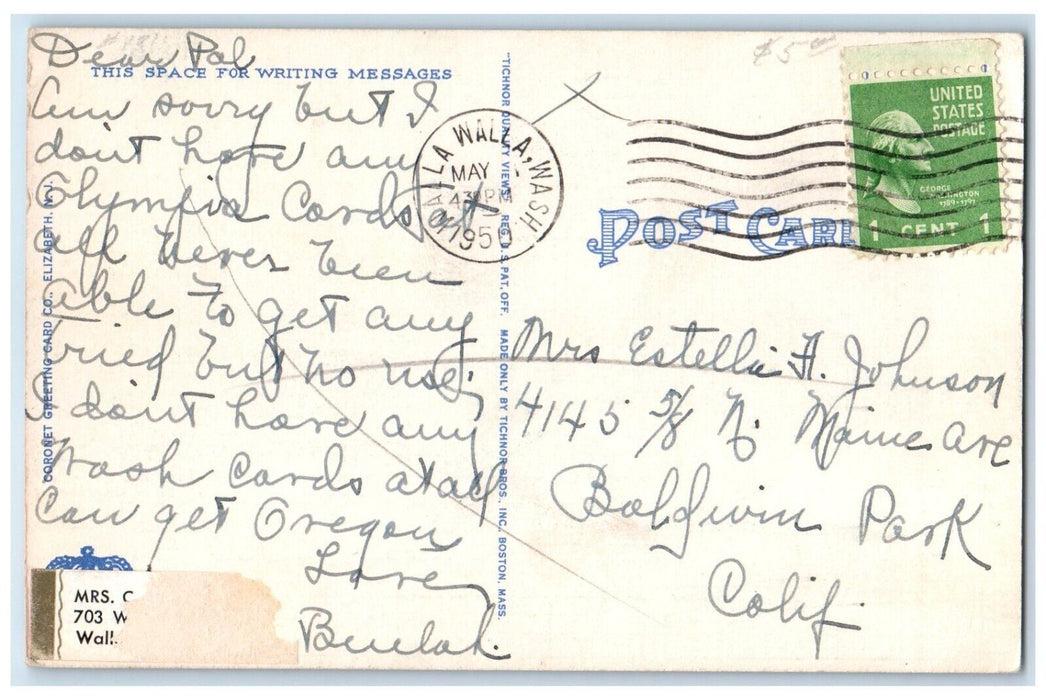 Dear Pal
THIS SPACE FOR WRITING MESSAGES
Am sorry but I
dont have any
Olympia Cards at
all never been
able to get any
Tried but no use.
I dont have any
Wash Cards at all
Can get Oregon
Love
Beulah.
MRS. C
703 W
Wall.
CORONET GREETING CARD CO., ELIZABETH, N.J.
"TICHNOR QUALITY VIEWS," REG. U. S. PAT. OFF. MADE ONLY BY TICHNOR BROS., INC., BOSTON, MASS.
WALLA WALLA, WASH
MAY
430 PM
1950
$5.00
UNITED
STATES
POSTAGE
GEORGE
WASHINGTON
1789-1797
1 CENT 1
POST CARD
Mrs Estella H. Johnson
4145 5/8 N. Maine Ave
Baldwin Park
Calif.